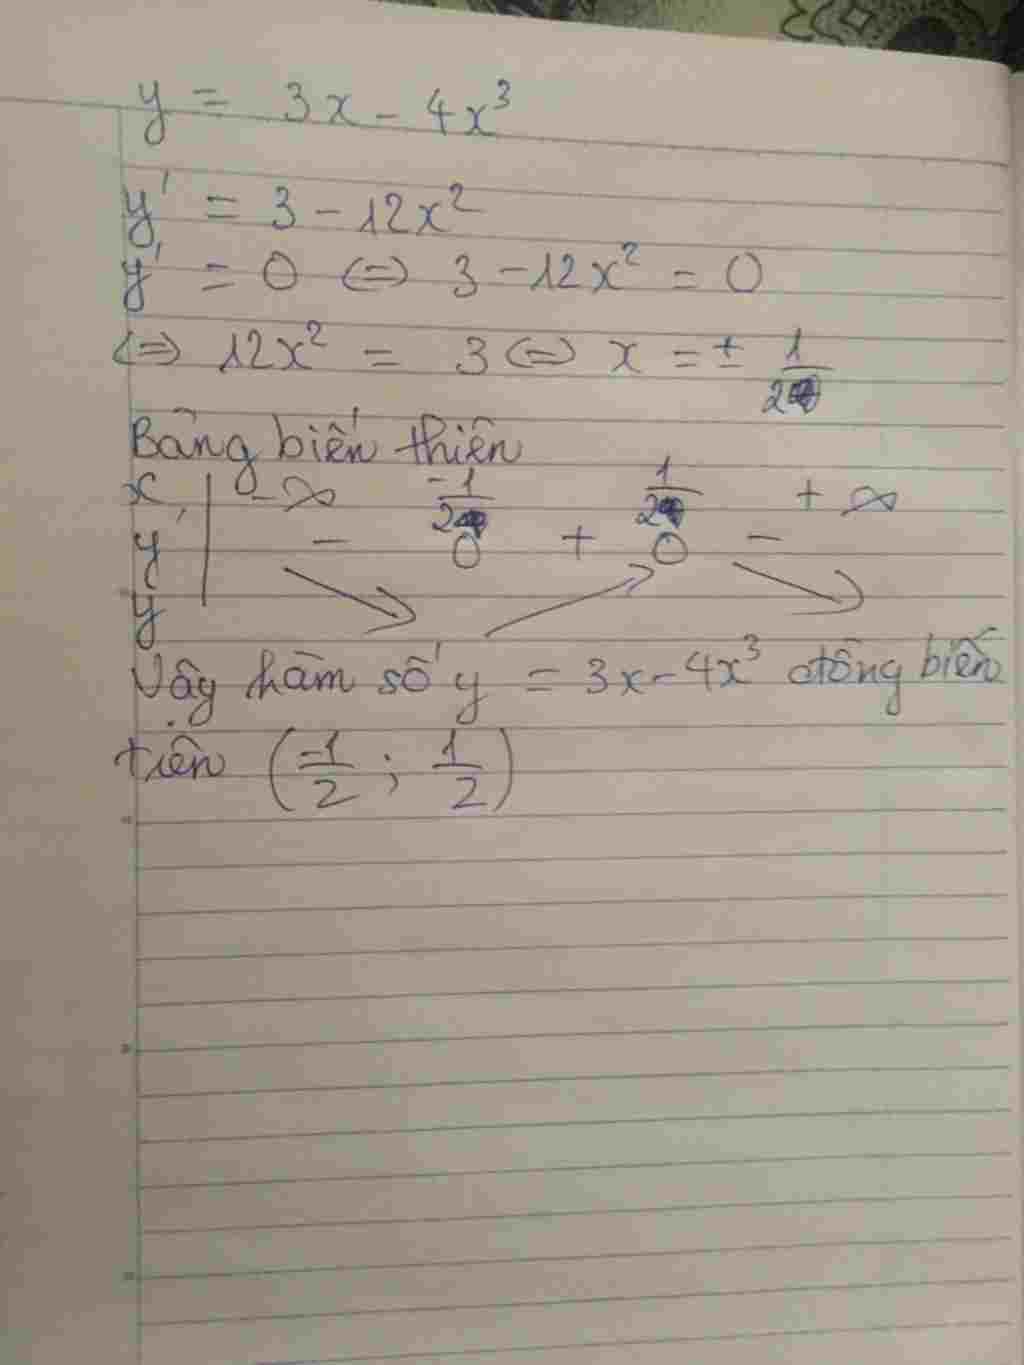 y = 3x - 4x³
y' = 3 - 12x²
y' = 0 ⇔ 3 - 12x² = 0
⇔ 12x² = 3 ⇔ x = ± 1/2
Bảng biến thiên
x | -∞ -1/2 1/2 +∞
y' | - 0 + 0 -
y | ↘ ↗ ↘
Vậy hàm số y = 3x - 4x³ đồng biến
trên (-1/2 ; 1/2)